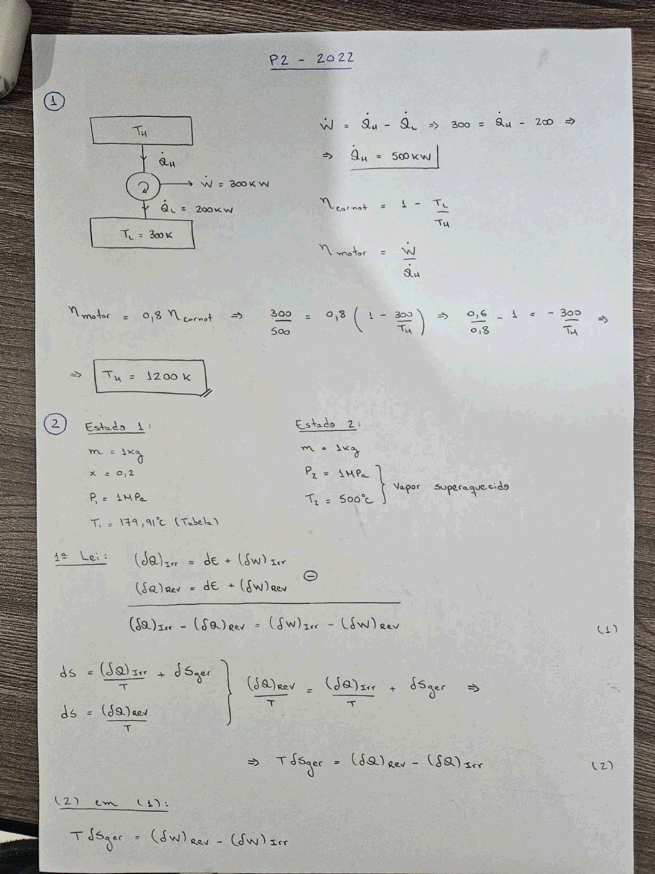 P2 - 2022
1
T_H
Q̇_H
Ẇ = 300KW
Q̇_L = 200KW
T_L = 300K
Ẇ = Q̇_H - Q̇_L ⇒ 300 = Q̇_H - 200 ⇒
⇒ Q̇_H = 500KW
η_carnot = 1 - T_L/T_H
η_motor = Ẇ/Q̇_H
η_motor = 0,8 η_carnot ⇒ 300/500 = 0,8 (1 - 300/T_H) ⇒ 0,6/0,8 - 1 = - 300/T_H ⇒
⇒ T_H = 1200 K
2
Estado 1:
m = 1kg
x = 0,2
P_1 = 1MPa
T_1 = 179,91°C (Tabela)
Estado 2:
m = 1kg
P_2 = 1MPa
T_2 = 500°C
Vapor superaquecido
1ª Lei:
(δQ)_Irr = dE + (δW)_Irr
(δQ)_Rev = dE + (δW)_Rev
⊖
(δQ)_Irr - (δQ)_Rev = (δW)_Irr - (δW)_Rev (1)
ds = (δQ)_Irr/T + δS_ger
ds = (δQ)_Rev/T
(δQ)_Rev/T = (δQ)_Irr/T + δS_ger ⇒
⇒ T δS_ger = (δQ)_Rev - (δQ)_Irr (2)
(2) em (1):
T δS_ger = (δW)_Rev - (δW)_Irr